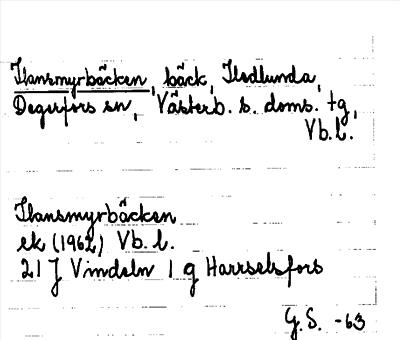 Flansmyrbäcken, bäck, Flodlunda,
Degerfors sn, Västerb. s. doms. tg,
Vb. l.
Flansmyrbäcken
ek (1962) Vb. l.
21 J Vindeln 1 g Harrselsfors
G. S. -63